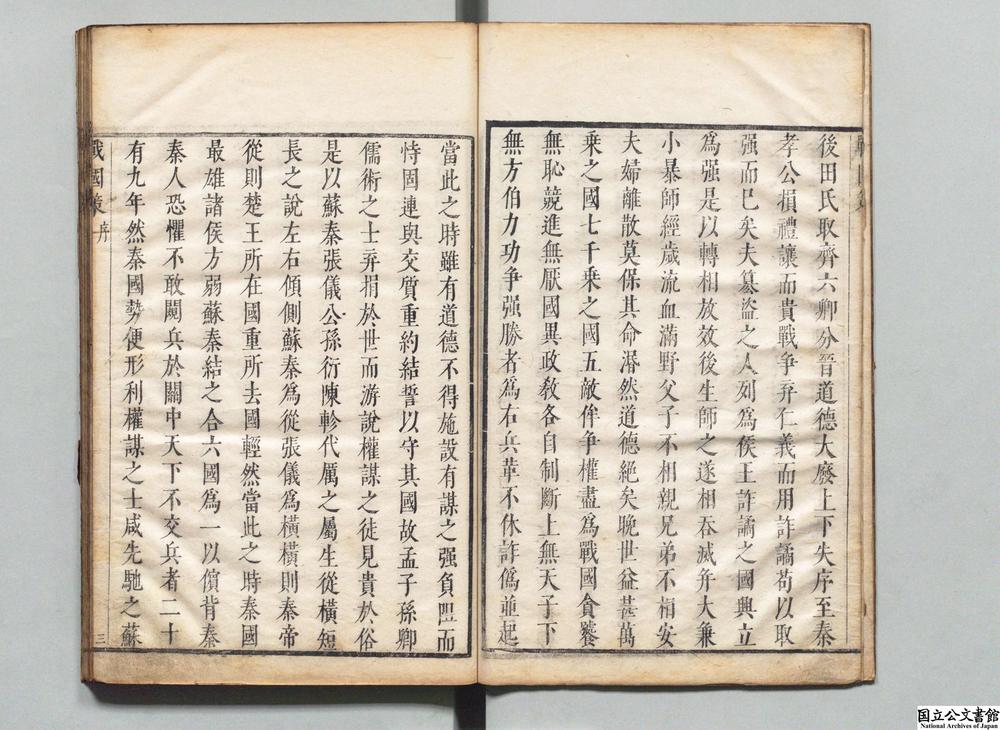 後田氏取齊六卿分晉道德大廢上下失序至秦
孝公捐禮讓而貴戰争弃仁義而用詐譎苟以取
强而已矣夫簒盜之人列為侯王詐譎之國興立
為强是以轉相放效後生師之遂相吞滅并大兼
小暴師經歲流血滿野父子不相親兄弟不相安
夫婦離散莫保其命湣然道德絕矣晚世益甚萬
乘之國七千乘之國五敵侔争權盡為戰國貪饕
無恥競進無厭國異政教各自制斷上無天子下
無方伯力功争强勝者為右兵革不休詐僞並起
當此之時雖有道德不得施設有謀之强負阻而
恃固連與交質重約結誓以守其國故孟子孫卿
儒術之士弃捐於世而游說權謀之徒見貴於俗
是以蘇秦張儀公孫衍陳軫代厲之屬生從橫短
長之說左右傾側蘇秦為從張儀為橫橫則秦帝
從則楚王所在國重所去國輕然當此之時秦國
最雄諸侯方弱蘇秦結之合六國為一以儐背秦
秦人恐懼不敢闚兵於關中天下不交兵者二十
有九年然秦國勢便形利權謀之士咸先馳之蘇
戰國策序
三
国立公文書館
National Archives of Japan